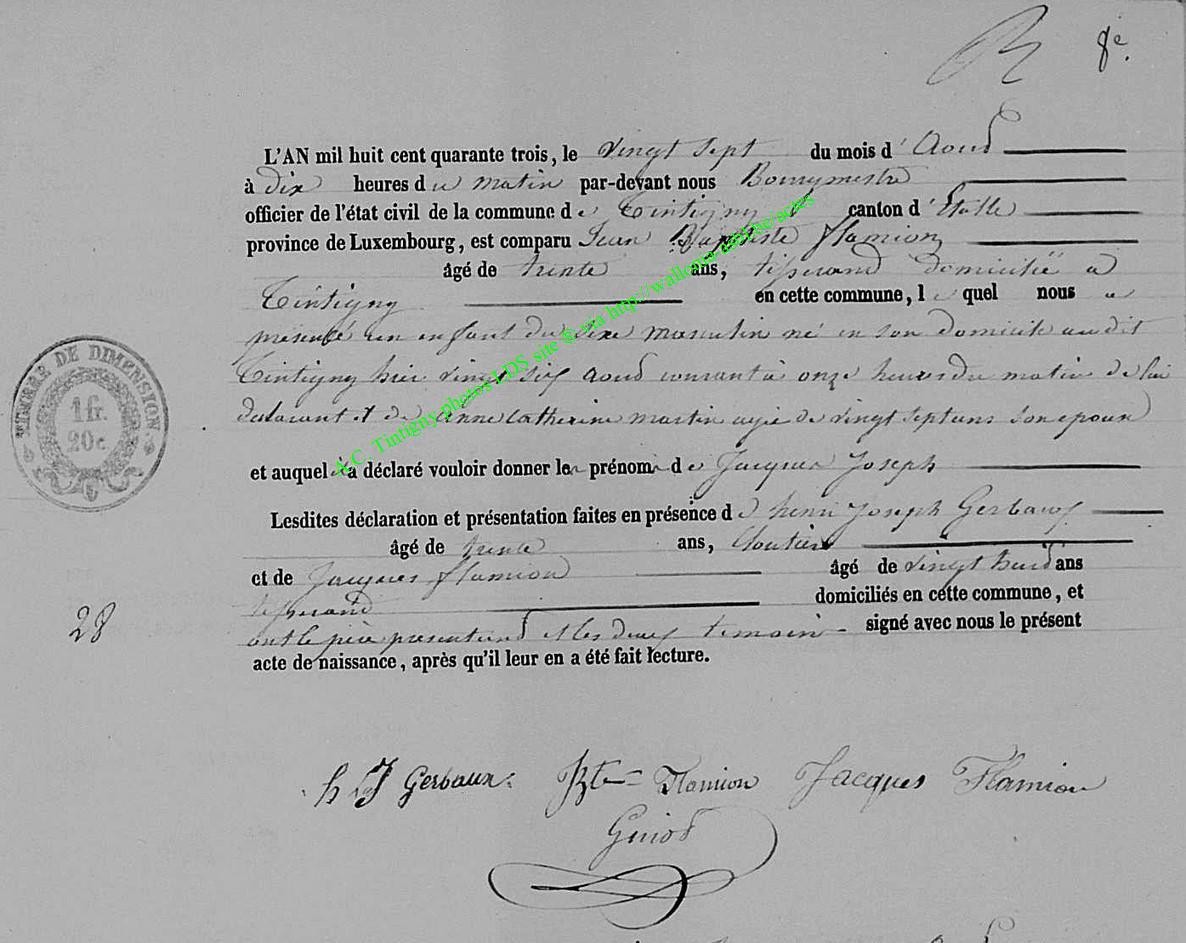 8e.
L'AN mil huit cent quarante trois, le vingt sept du mois d' Aoud
à dix heures du matin par-devant nous Bourgmestre
officier de l'état civil de la commune de Tintigny canton d' Etalle
province de Luxembourg, est comparu Jean Baptiste flamion
âgé de trente ans, tisserand domicilié a
Tintigny en cette commune, le quel nous a
présenté un enfant du sexe masculin né en son domicile audit
Tintigny hier vingt six aoud courant a onze heures du matin de lui
declarant et de Anne Catherine martin agée de vingt sept ans son epouse
et auquel il a déclaré vouloir donner les prénoms de Jacques Joseph
Lesdites déclaration et présentation faites en présence de henri Joseph Gerbaux
âgé de trente ans, cloutier
et de Jacques flamion âgé de vingt huit ans
tisserand domiciliés en cette commune, et
ont le père presentend et les deux temoin signé avec nous le présent
acte de naissance, après qu'il leur en a été fait lecture.
28
TIMBRE DE DIMENSION
1 fr.
20 c
h J Gerbaux Bte Flamion Jacques Flamion
Guiot
A.C. Tintigny photos LDS site & via http://wallonia-asbl.be/actes